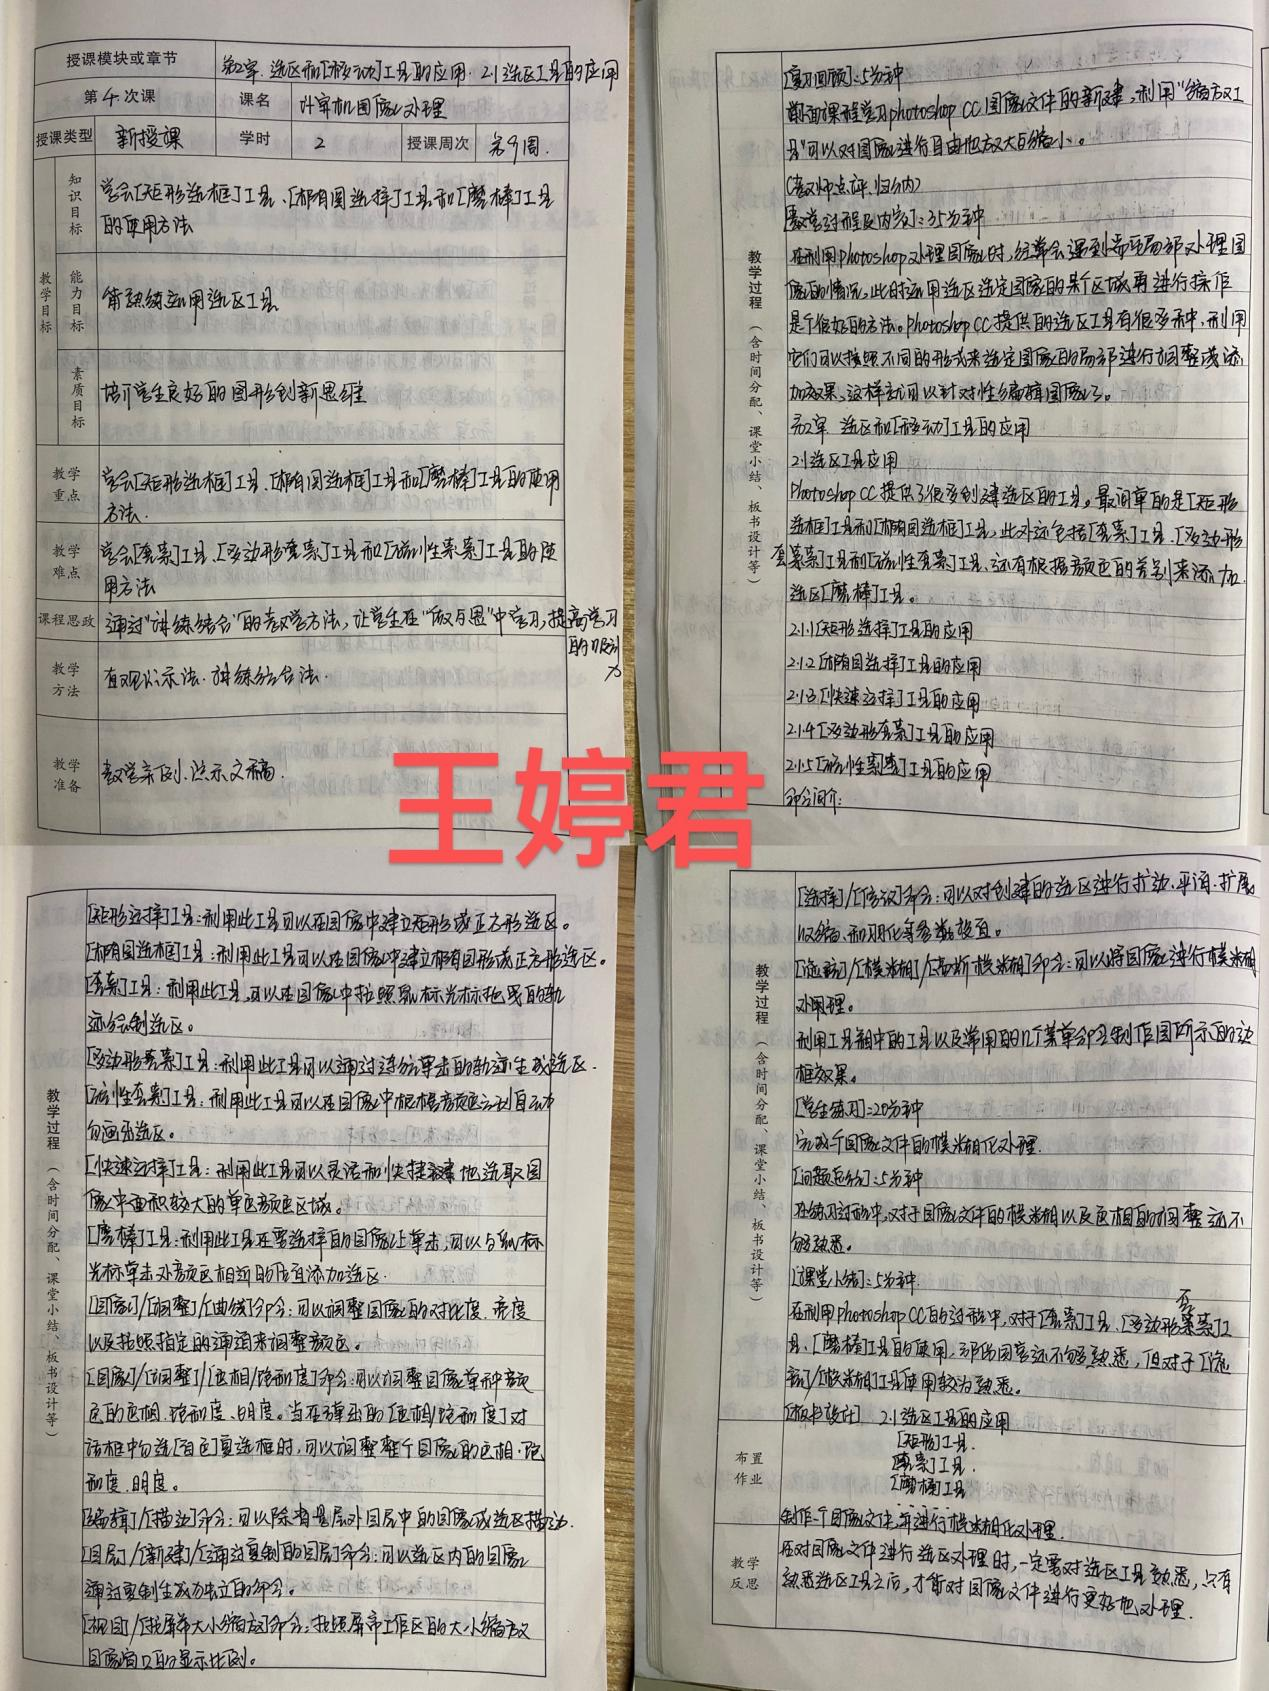 授课模块或章节 第2章.选区和[移动]工具的应用.2.1选区工具的应用
第4次课 课名 计算机图像处理
授课类型 新授课 学时 2 授课周次 第9周.
教学目标
知识目标
学会[矩形选框]工具、[椭圆选择]工具和[魔棒]工具
的使用方法
能力目标
能熟练运用选区工具
素质目标
培养学生良好的图形创新思维
教学重点
学会[矩形选框]工具.[椭圆选框]工具和[魔棒]工具的使用
方法.
教学难点
学会[套索]工具、[多边形套索]工具和[磁性套索]工具的使
用方法
课程思政 通过"讲练结合"的教学方法,让学生在"做与思"中学习,提高学习
的吸引
力
教学方法
直观演示法.讲练结合法.
教学准备
教学案例.演示文稿.
王婷君
教学过程(含时间分配、课堂小结、板书设计等)
[复习回顾]:5分钟
前面课程学习photoshop CC图像文件的新建,利用"缩放工
具"可以对图像进行自由地放大与缩小。
(教师点评、归纳)
[教学过程及内容]:35分钟
在利用photoshop处理图像时,经常会遇到需要局部处理图
像的情况,此时运用选区选定图像的某个区域再进行操作
是个很好的方法。photoshop CC提供的选区工具有很多种,利用
它们可以按照不同的形式来选定图像的局部进行调整或添
加效果,这样就可以针对性编辑图像了。
第2章.选区和[移动]工具的应用
2.1选区工具应用
Photoshop CC提供了很多创建选区的工具。最简单的是[矩形
选框]工具和[椭圆选框]工具,此外还包括[套索]工具.[多边形
套索]工具和[磁性套索]工具,还有根据颜色的差别来添加
选区[魔棒]工具。
2.1.1[矩形选择]工具的应用
2.1.2[椭圆选择]工具的应用
2.1.3[快速选择]工具的应用
2.1.4[多边形套索]工具的应用
2.1.5[磁性套索]工具的应用
命令简介:
教学过程(含时间分配、课堂小结、板书设计等)
[矩形选择]工具:利用此工具可以在图像中建立矩形或正方形选区。
[椭圆选框]工具:利用此工具可以在图像中建立椭圆形或正方形选区。
[套索]工具:利用此工具,可以在图像中按照鼠标光标拖曳的轨
迹绘制选区。
[多边形套索]工具:利用此工具可以通过连续单击的轨迹生成选区.
[磁性套索]工具:利用此工具可以在图像中根据颜色差别自动
勾画出选区。
[快速选择]工具:利用此工具可以灵活和快捷地选取图
像中面积较大的单色颜色区域。
[魔棒]工具:利用此工具在要选择的图像上单击,可以与鼠标
光标单击处颜色相近的位置添加选区.
[图像]/[调整]/[曲线]命令:可以调整图像的对比度.亮度
以及按照指定的通道来调整颜色。
[图像]/[调整]/[色相/饱和度]命令:可以调整图像单种颜
色的色相.饱和度.明度。当在弹出的[色相/饱和度]对
话框中勾选[着色]复选框时,可以调整整个图像的色相.饱
和度.明度。
[编辑]/[描边]命令:可以除背景层外图层中的图像或选区描边.
[图层]/[新建]/[通过复制的图层]命令:可以选区内的图像
通过复制生成为独立的部分。
[视图]/[按屏幕大小缩放]命令:按照屏幕工作区的大小缩放
图像窗口的显示比例。
教学过程(含时间分配、课堂小结、板书设计等)
[选择]/[修改]命令:可以对创建的选区进行扩边.平滑.扩展
收缩.和羽化等参数设置。
[滤镜]/[模糊]/[高斯模糊]命令:可以将图像进行模糊
处理。
利用工具箱中的工具以及常用的几个菜单命令制作图所示的边
框效果。
[学生练习]:20分钟
完成个图像文件的模糊化处理.
[问题总结]:5分钟
在练习过程中,对于图像文件的模糊以及色相的调整还不
够熟悉。
[课堂小结]:5分钟.
在利用photoshop CC的过程中,对于[套索]工具.[多边形套索]工
具.[魔棒]工具的使用,部份同学还不够熟悉,但对于[滤
镜]/[模糊]工具使用较为熟悉。
[板书设计] 2.1选区工具的应用
[矩形]工具.
[套索]工具.
[魔棒]工具
......
布置作业
制作一个图像文件,并进行模糊化处理.
教学反思
在对图像文件进行选区处理时,一定要对选区工具熟悉,只有
熟悉选区工具之后,才能对图像文件进行更好地处理.